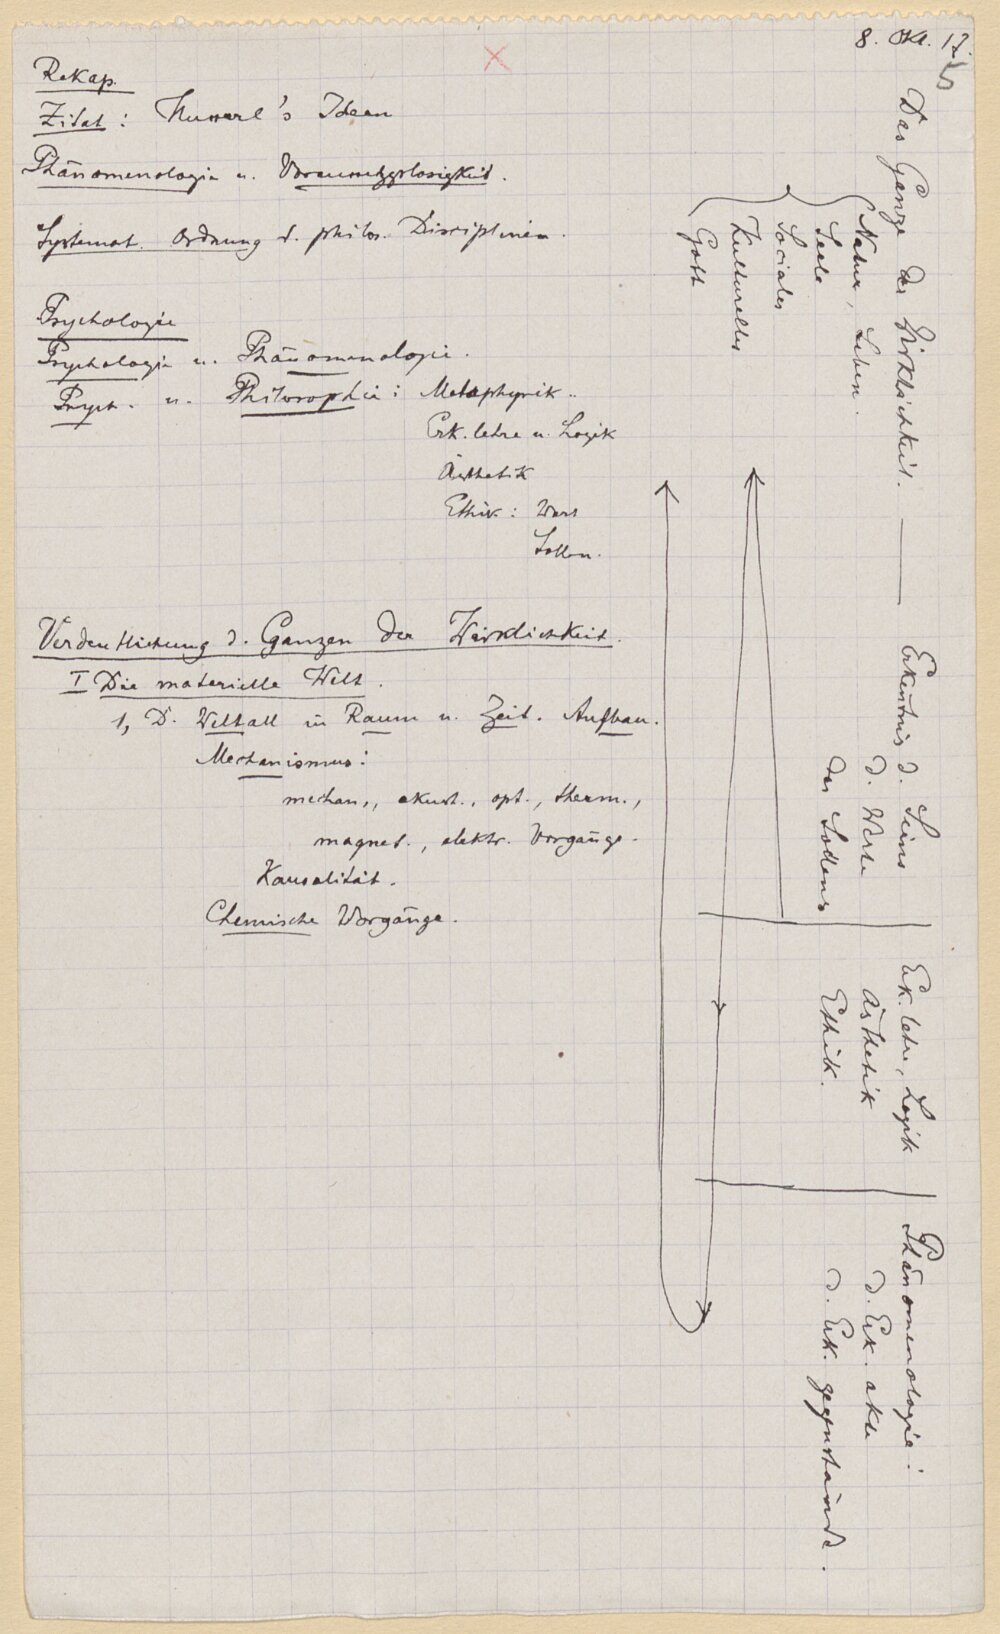 8. Okt. 17.
Rekap.
Zitat: Husserl's Ideen
Phänomenologie u. Voraussetzgslosigkeit.
Systemat. Ordnung d. philos. Disciplinen.
Psychologie
Psychologie u. Phänomenologie.
Psych. u. Philosophie: Metaphysik.
Erk.lehre u. Logik
Ästhetik
Ethik: Wert
Sollen.
Verdeutlichung d. Ganzen der Wirklichkeit.
I Die materielle Welt.
1, D. Weltall in Raum u. Zeit. Aufbau.
Mechanismus:
mechan., akust., opt., therm.,
magnet., elektr. Vorgänge.
Kausalität.
Chemische Vorgänge.
Das Ganze der Wirklichkeit. — Erkentnis d. Seins
Natur, Leben.
Seele
Soziales
Kulturelles
Gott
d. Werte
des Sollens
Erk.lehre, Logik
Ästhetik
Ethik.
Phänomenologie:
d. Erk. akte
d. Erk. gegenstände.